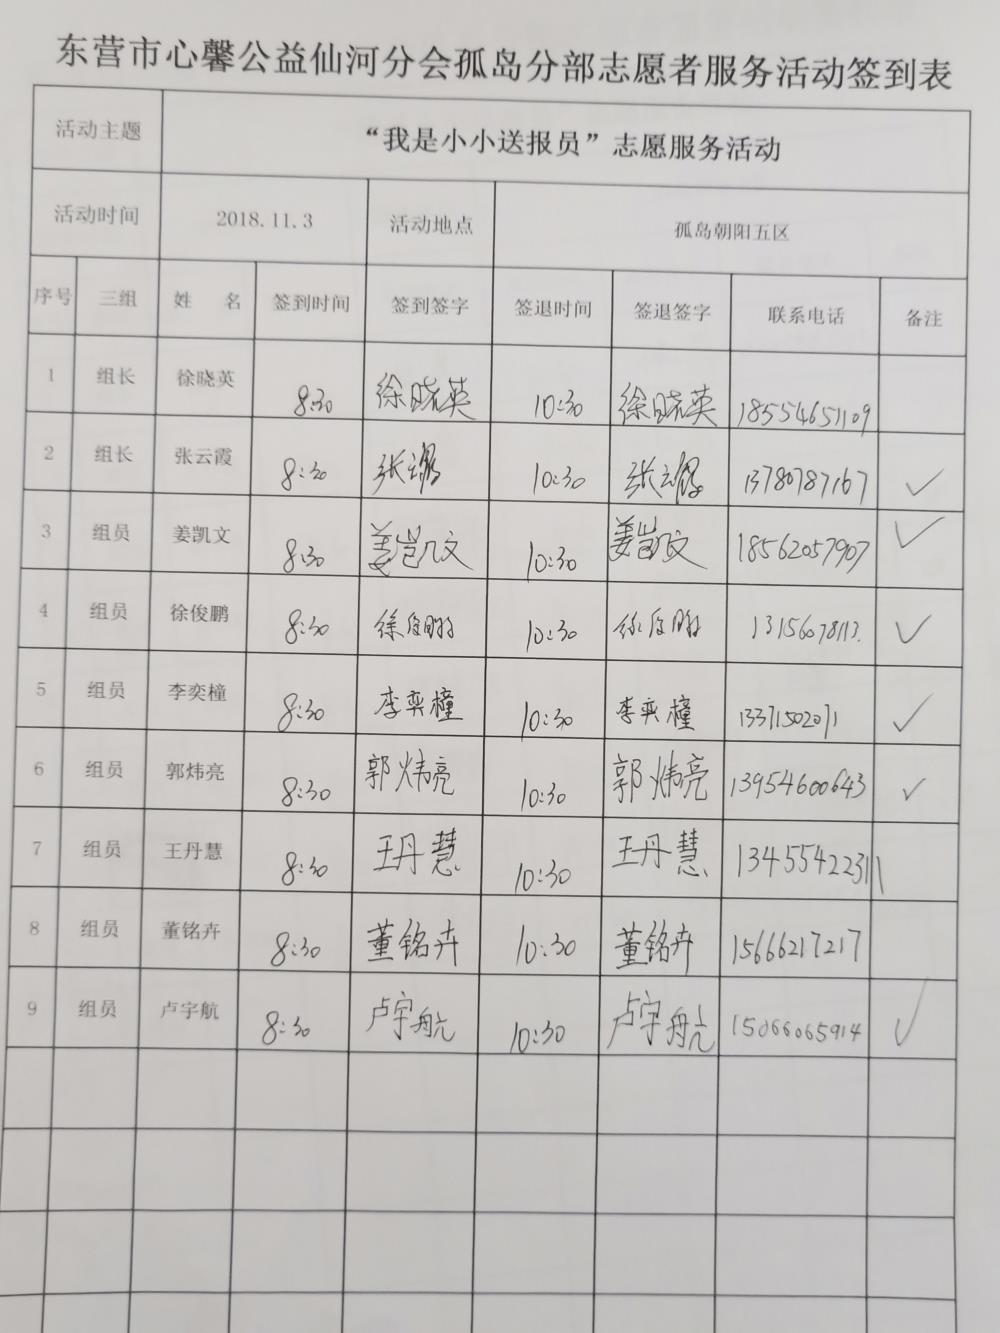 东营市心馨公益仙河分会孤岛分部志愿者服务活动签到表
活动主题 “我是小小送报员”志愿服务活动
活动时间 2018.11.3 活动地点 孤岛朝阳五区
序号 三组 姓 名 签到时间 签到签字 签退时间 签退签字 联系电话 备注
1 组长 徐晓英 8:30 徐晓英 10:30 徐晓英 18554651109
2 组长 张云霞 8:30 张云霞 10:30 张云霞 13780787167 ✓
3 组员 姜凯文 8:30 姜凯文 10:30 姜凯文 18562057907 ✓
4 组员 徐俊鹏 8:30 徐俊鹏 10:30 徐俊鹏 13156078113. ✓
5 组员 李奕橦 8:30 李奕橦 10:30 李奕橦 13371502071 ✓
6 组员 郭炜亮 8:30 郭炜亮 10:30 郭炜亮 13954600643 ✓
7 组员 王丹慧 8:30 王丹慧 10:30 王丹慧 13455422311
8 组员 董铭卉 8:30 董铭卉 10:30 董铭卉 15666217217
9 组员 卢宇航 8:30 卢宇航 10:30 卢宇航 15066065914 ✓